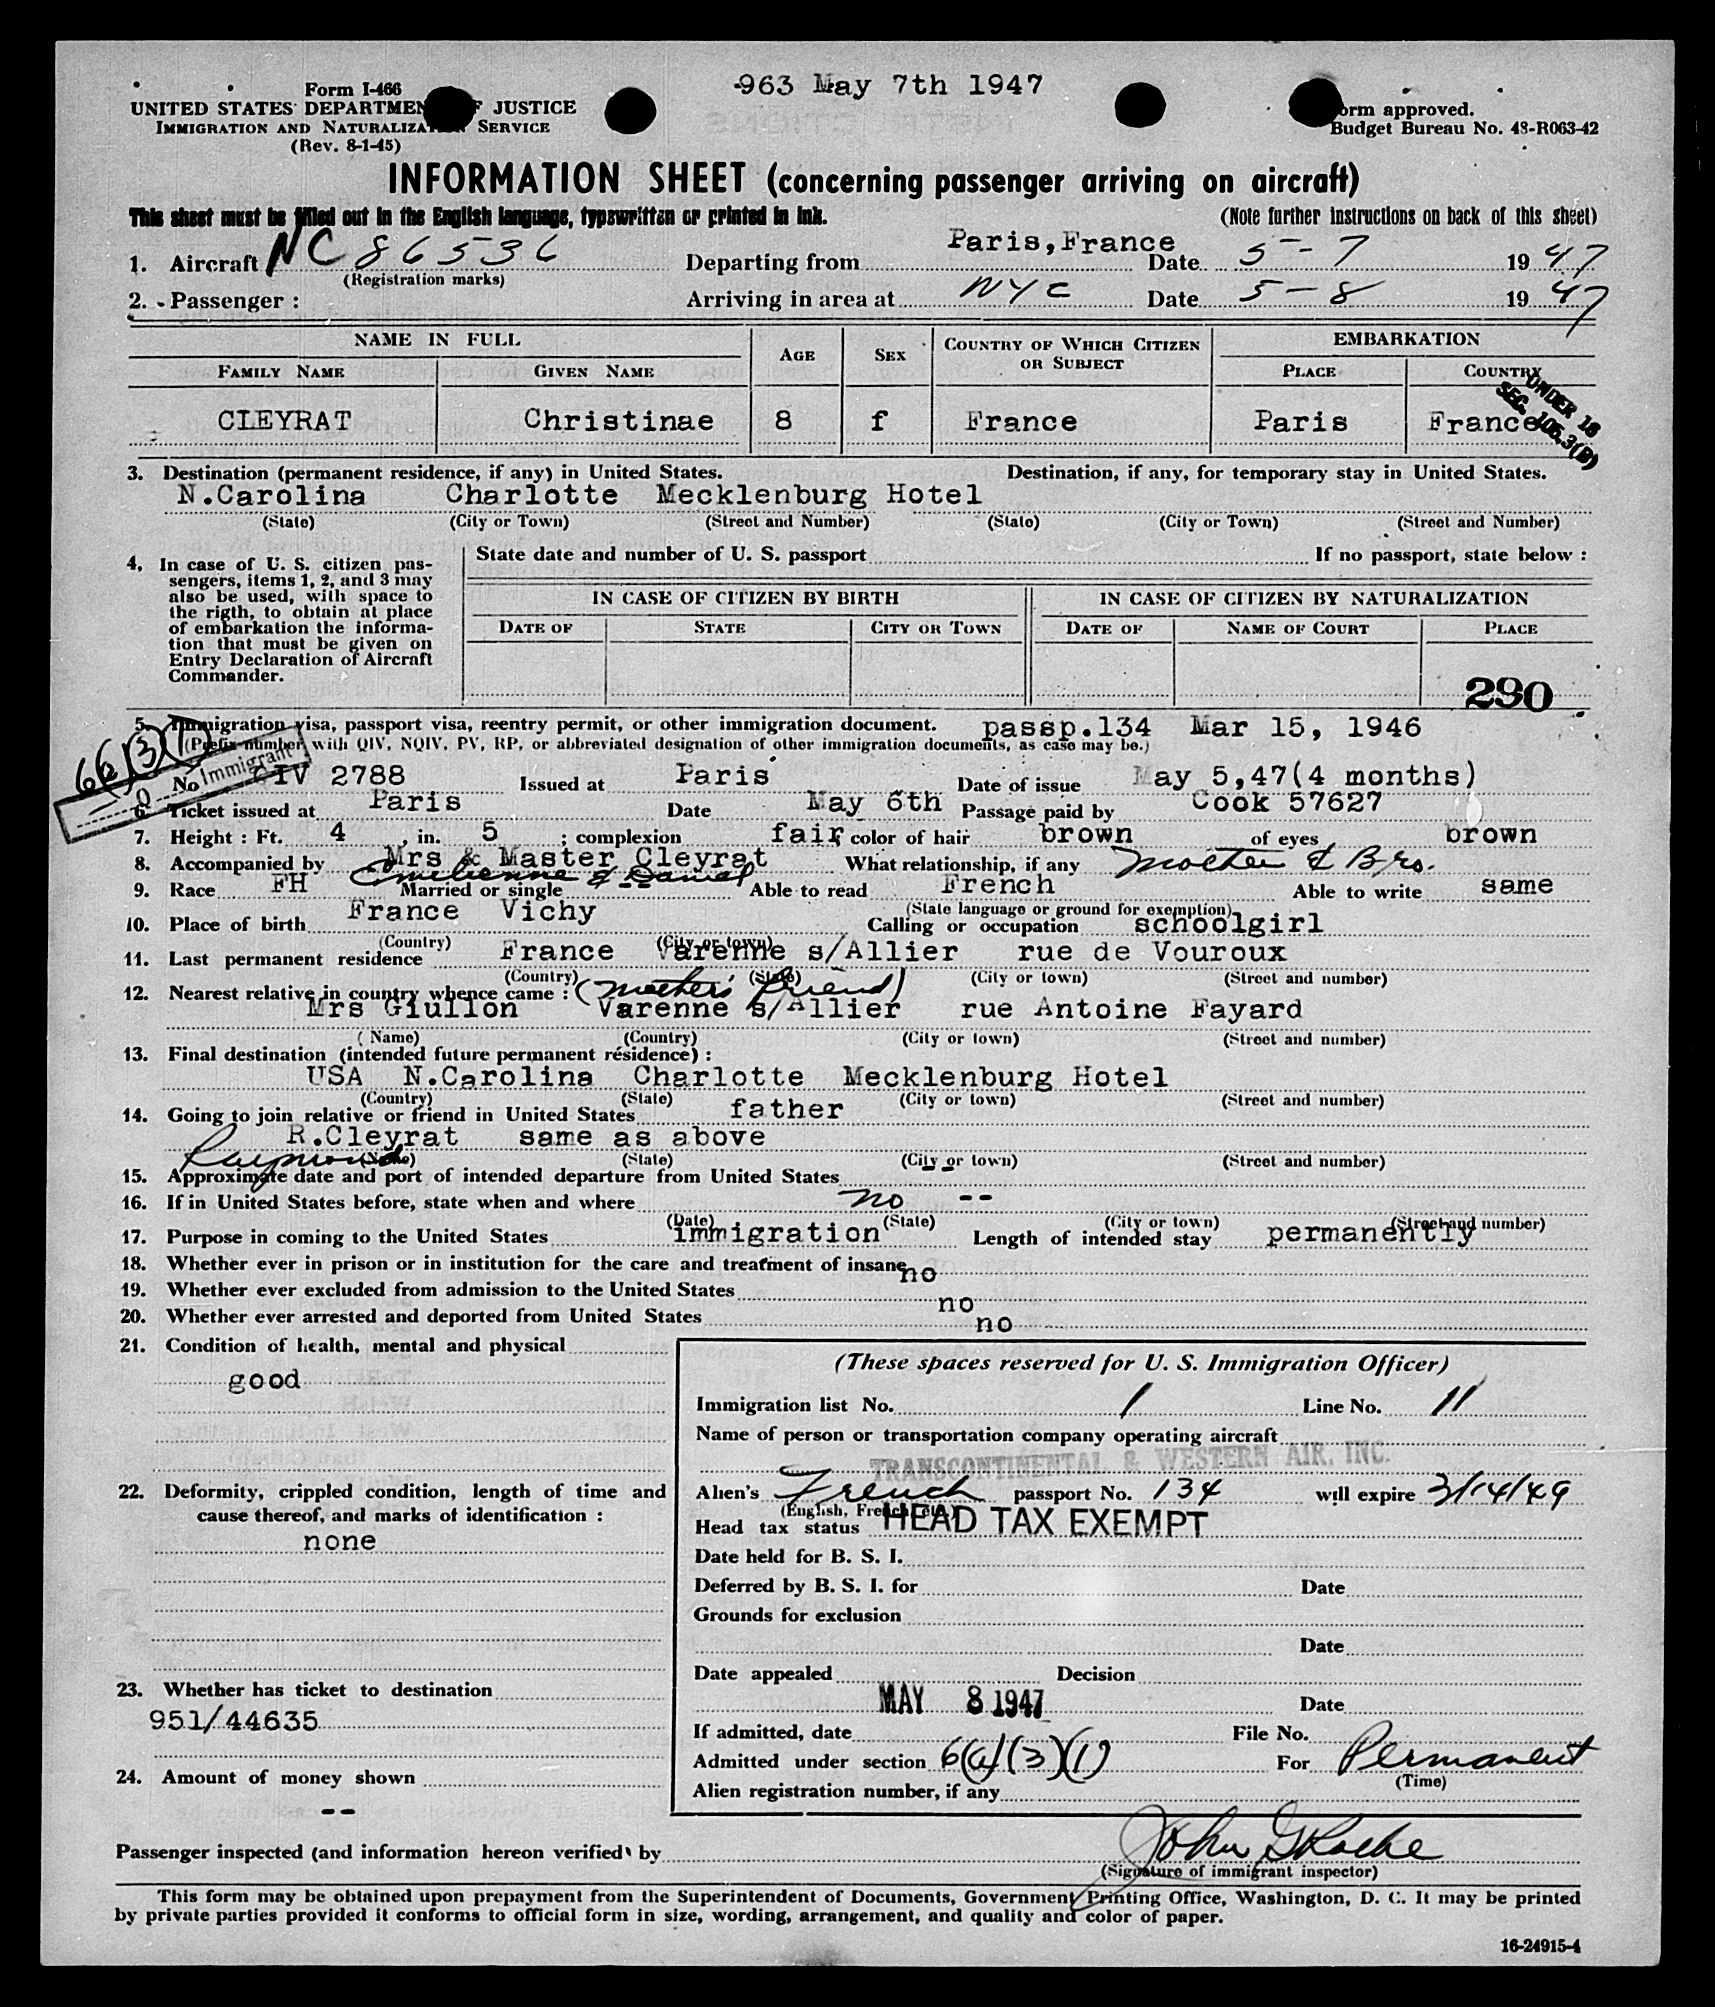 963 May 7th 1947
Form I-466
UNITED STATES DEPARTMENT OF JUSTICE
IMMIGRATION AND NATURALIZATION SERVICE
(Rev. 8-1-45)
Form approved.
Budget Bureau No. 43-R063-42
INFORMATION SHEET (concerning passenger arriving on aircraft)
This sheet must be filled out in the English language, typewritten or printed in ink. (Note further instructions on back of this sheet)
1. Aircraft NC 86536 Departing from Paris, France Date 5-7 1947
(Registration marks)
2. Passenger : Arriving in area at NYC Date 5-8 1947
NAME IN FULL AGE SEX COUNTRY OF WHICH CITIZEN OR SUBJECT EMBARKATION
FAMILY NAME GIVEN NAME PLACE COUNTRY
UNDER 16
SEC. 105.3(B)
CLEYRAT Christinae 8 f France Paris France
3. Destination (permanent residence, if any) in United States. Destination, if any, for temporary stay in United States.
N.Carolina Charlotte Mecklenburg Hotel
(State) (City or Town) (Street and Number) (State) (City or Town) (Street and Number)
4. In case of U. S. citizen pas-
sengers, items 1, 2, and 3 may
also be used, with space to
the rigth, to obtain at place
of embarkation the informa-
tion that must be given on
Entry Declaration of Aircraft
Commander.
State date and number of U. S. passport If no passport, state below :
IN CASE OF CITIZEN BY BIRTH IN CASE OF CITIZEN BY NATURALIZATION
DATE OF STATE CITY OR TOWN DATE OF NAME OF COURT PLACE
290
5. Immigration visa, passport visa, reentry permit, or other immigration document. passp.134 Mar 15, 1946
(Prefix number with QIV, NQIV, PV, RP, or abbreviated designation of other immigration documents, as case may be.)
6(a)(3)(1)
Immigrant
No QIV 2788 Issued at Paris Date of issue May 5,47(4 months)
6. Ticket issued at Paris Date May 6th Passage paid by Cook 57627
7. Height : Ft. 4, in. 5 ; complexion fair, color of hair brown of eyes brown
8. Accompanied by Mrs & Master Cleyrat What relationship, if any Mother & Bro.
Emelienne & Daniel
9. Race FH Married or single -- Able to read French Able to write same
(State language or ground for exemption)
10. Place of birth France Vichy Calling or occupation schoolgirl
(Country) (City or town)
11. Last permanent residence France Varenne s/Allier rue de Vouroux
(Country) (State) (City or town) (Street and number)
12. Nearest relative in country whence came : (mother's friend)
Mrs Giullon Varenne s/Allier rue Antoine Fayard
(Name) (Country) (City or town) (Street and number)
13. Final destination (intended future permanent residence) :
USA N.Carolina Charlotte Mecklenburg Hotel
(Country) (State) (City or town) (Street and number)
14. Going to join relative or friend in United States father
R.Cleyrat same as above
Raymond
(Name) (State) (City or town) (Street and number)
15. Approximate date and port of intended departure from United States --
16. If in United States before, state when and where no --
(Date) (State) (City or town) (Street and number)
17. Purpose in coming to the United States immigration Length of intended stay permanently
18. Whether ever in prison or in institution for the care and treatment of insane no
19. Whether ever excluded from admission to the United States no
20. Whether ever arrested and deported from United States no
21. Condition of health, mental and physical
good
22. Deformity, crippled condition, length of time and
cause thereof, and marks of identification :
none
23. Whether has ticket to destination
951/44635
24. Amount of money shown
--
(These spaces reserved for U. S. Immigration Officer)
Immigration list No. 1 Line No. 11
Name of person or transportation company operating aircraft
TRANSCONTINENTAL & WESTERN AIR, INC.
Alien's French passport No. 134 will expire 3/14/49
(English, French, etc.)
Head tax status HEAD TAX EXEMPT
Date held for B. S. I.
Deferred by B. S. I. for Date
Grounds for exclusion
Date
Date appealed Decision
Date
MAY 8 1947
If admitted, date File No.
Admitted under section 6(a)(3)(1) For Permanent
(Time)
Alien registration number, if any
Passenger inspected (and information hereon verified) by John G Roche
(Signature of immigrant inspector)
This form may be obtained upon prepayment from the Superintendent of Documents, Government Printing Office, Washington, D. C. It may be printed
by private parties provided it conforms to official form in size, wording, arrangement, and quality and color of paper.
16-24915-4